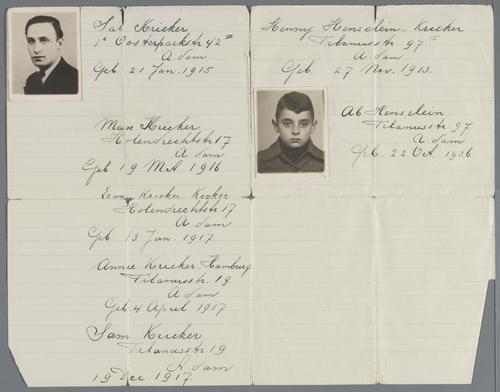 Sal Krieker
1e Oosterparkstr 42 II
A dam
Geb. 21 Jan. 1915
Max Krieker
Holendrechtstr 17
A dam
Geb 19 Mrt. 1916
Eva Krieker-Kooker
Holendrechtstr 17
A dam
Geb 13 Jan. 1917
Annie Krieker-Hamburg
Tilanusstr. 19
A dam
Geb. 4 April 1917
Sam Krieker
Tilanusstr 19
A. dam
19 Dec. 1917
Henny Henselein-Krieker
Tilanusstr 97 II
A dam
Geb 27 Nov. 1913.
Ab Henselein
Tilanusstr. 97
A. dam
Geb. 22 Oct. 1936